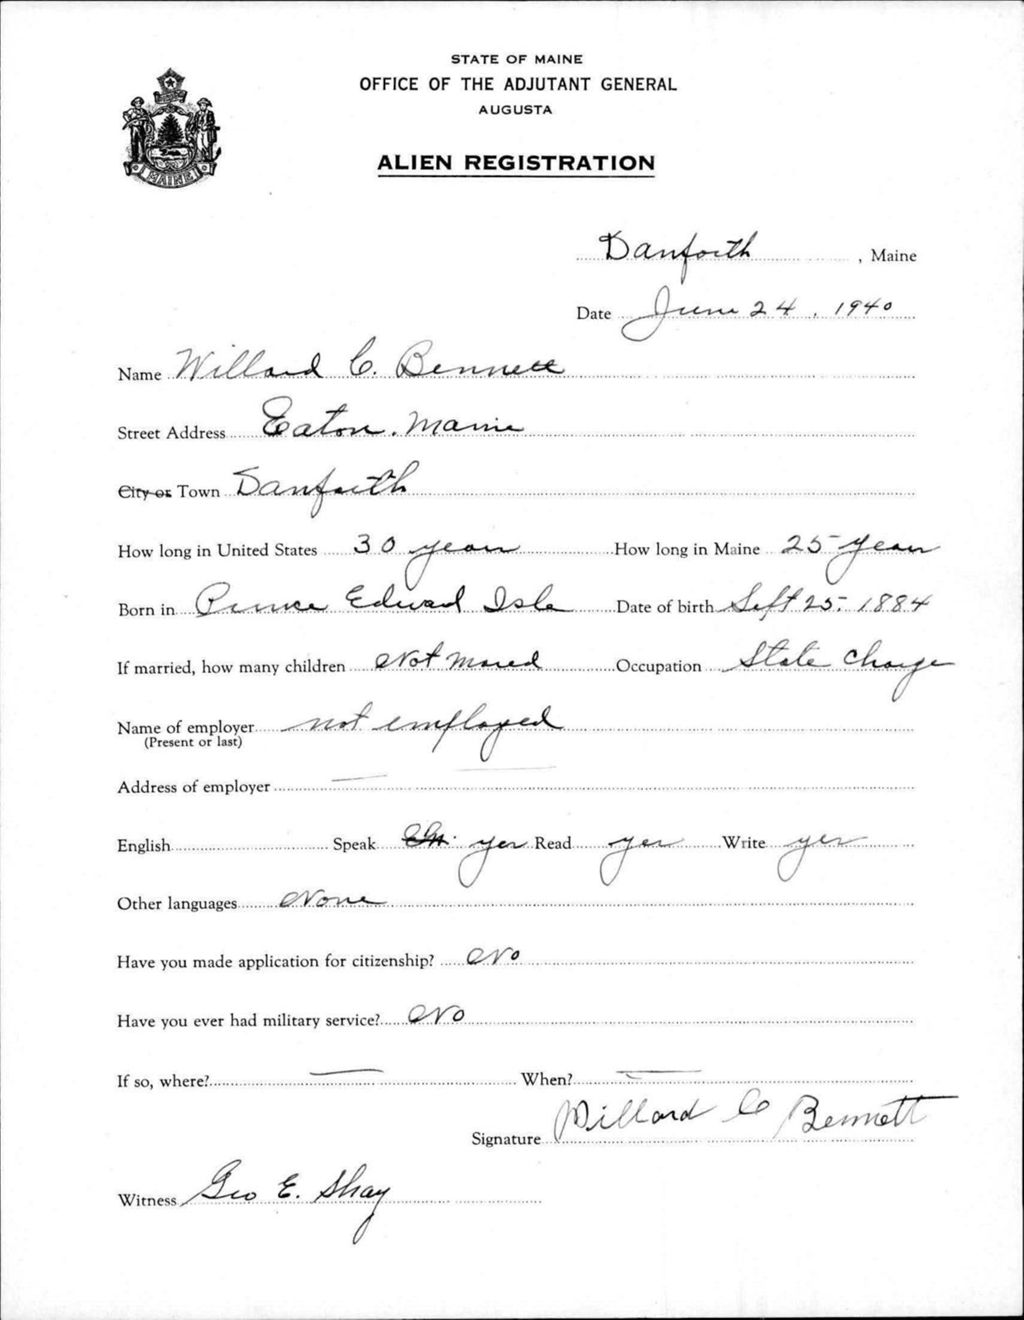 STATE OF MAINE
OFFICE OF THE ADJUTANT GENERAL
AUGUSTA
ALIEN REGISTRATION
MAINE
Danforth, Maine
Date June 24, 1940
Name Willard C. Bennett
Street Address Eaton. Maine
City or Town Danforth
How long in United States 30 years How long in Maine 25 years
Born in Prince Edward Isle Date of birth Sept 25. 1884
If married, how many children Not Maried Occupation State Charge
Name of employer not employed
(Present or last)
Address of employer —
English Speak yes Read yes Write yes
Other languages None
Have you made application for citizenship? No
Have you ever had military service? No
If so, where? — When? —
Signature Willard C Bennett
Witness Geo E. Shay